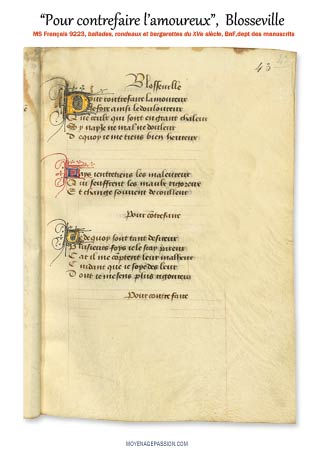 “Pour contrefaire l’amoureux”, Blosseville
MS Français 9223, ballades, rondeaux et bergerettes du XVe siècle, BnF,dept des manuscrits
43
Blosseville
Pour contrefaire lamoureux
ainsi le douloureux
Que ceulx qui sont en grant chaleur
Sy nay ie mal ne douleur
De quoy ie me tiens bien heureux
Puys entretiens les maleureux
Qui seuffrent les maulx rigoreux
Et change souvent de couleur
Pour cōtrefaire
de quoy sont tant desireux
Plusieurs foys ie le scay
Car il me cōptent leur malheur
Cuidant que ie soye des leur
Dont ie me sens plus rigoureux
Pour contrefaire
MOYENAGEPASSION.COM